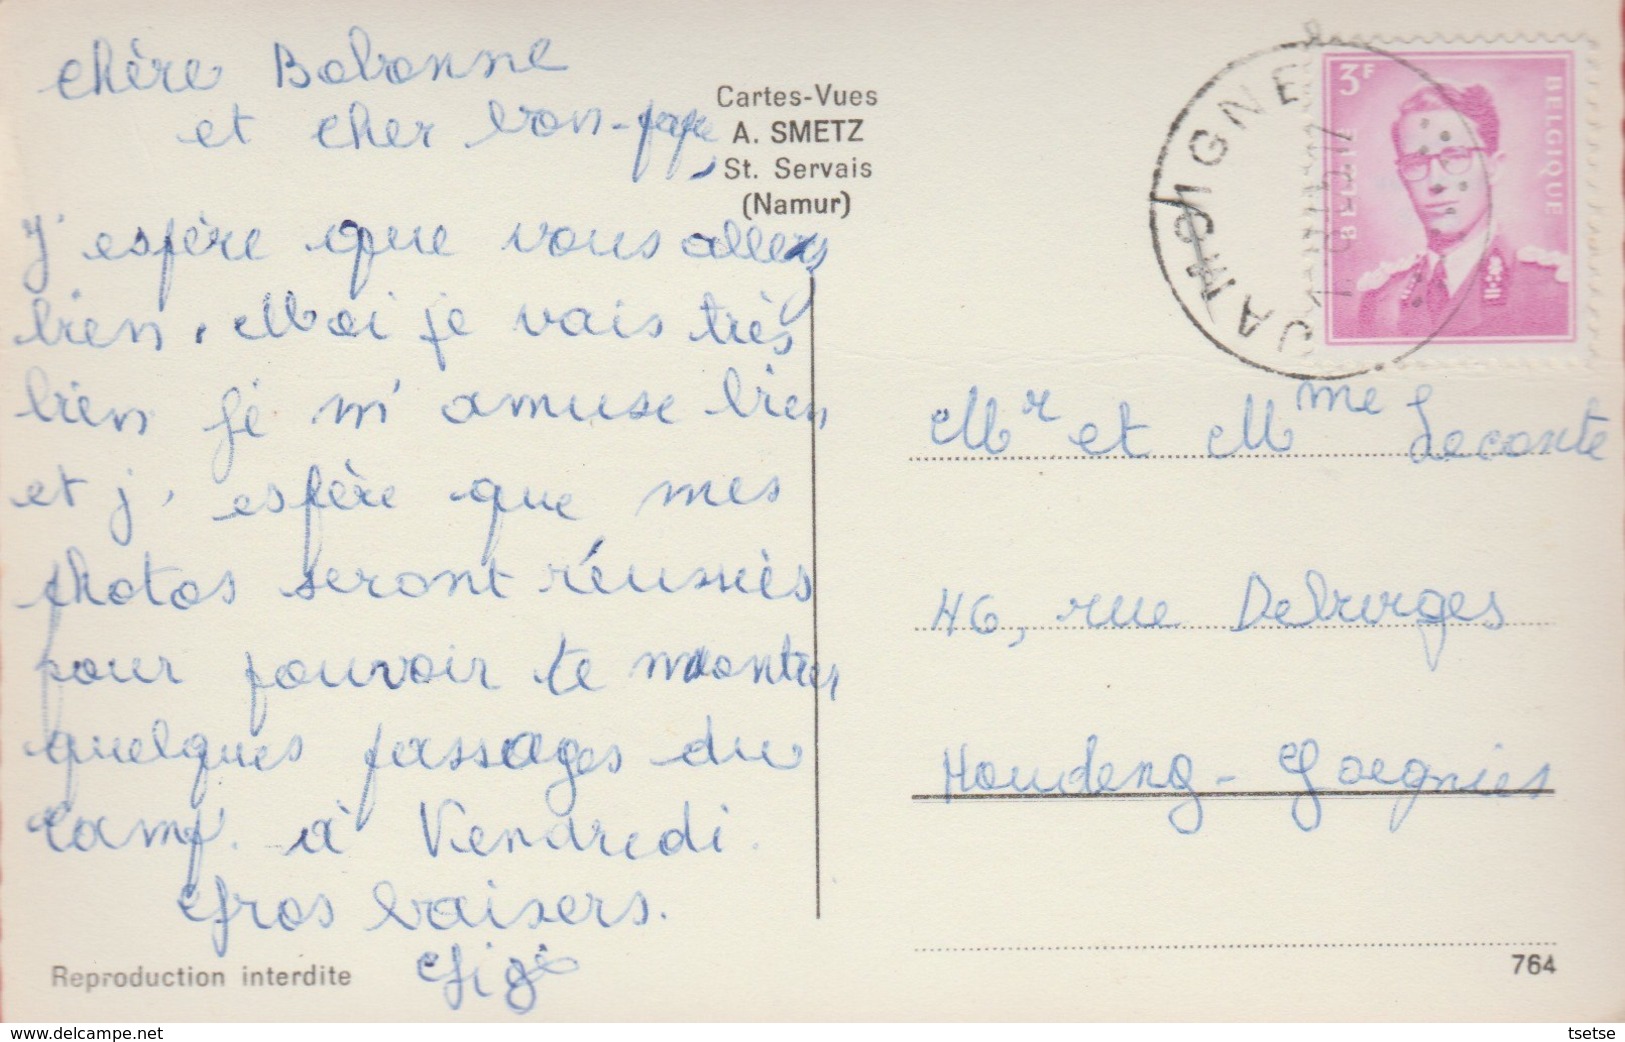 Chère Bobonne
et cher bon-papa,
J'espère que vous allez
bien. Moi je vais très
bien je m'amuse bien
et j'espère que mes
photos seront réussies
pour pouvoir te montrer
quelques passages du
camp. à Vendredi.
Gros baisers.
Gigi
Reproduction interdite
Cartes-Vues
A. SMETZ
St. Servais
(Namur)
JAMOIGNE
3F
BELGIQUE
BELGIE
Mr et Mme Leconte
46, rue Debruges
Houdeng-Goegnies
764
www.delcampe.net
tsetse